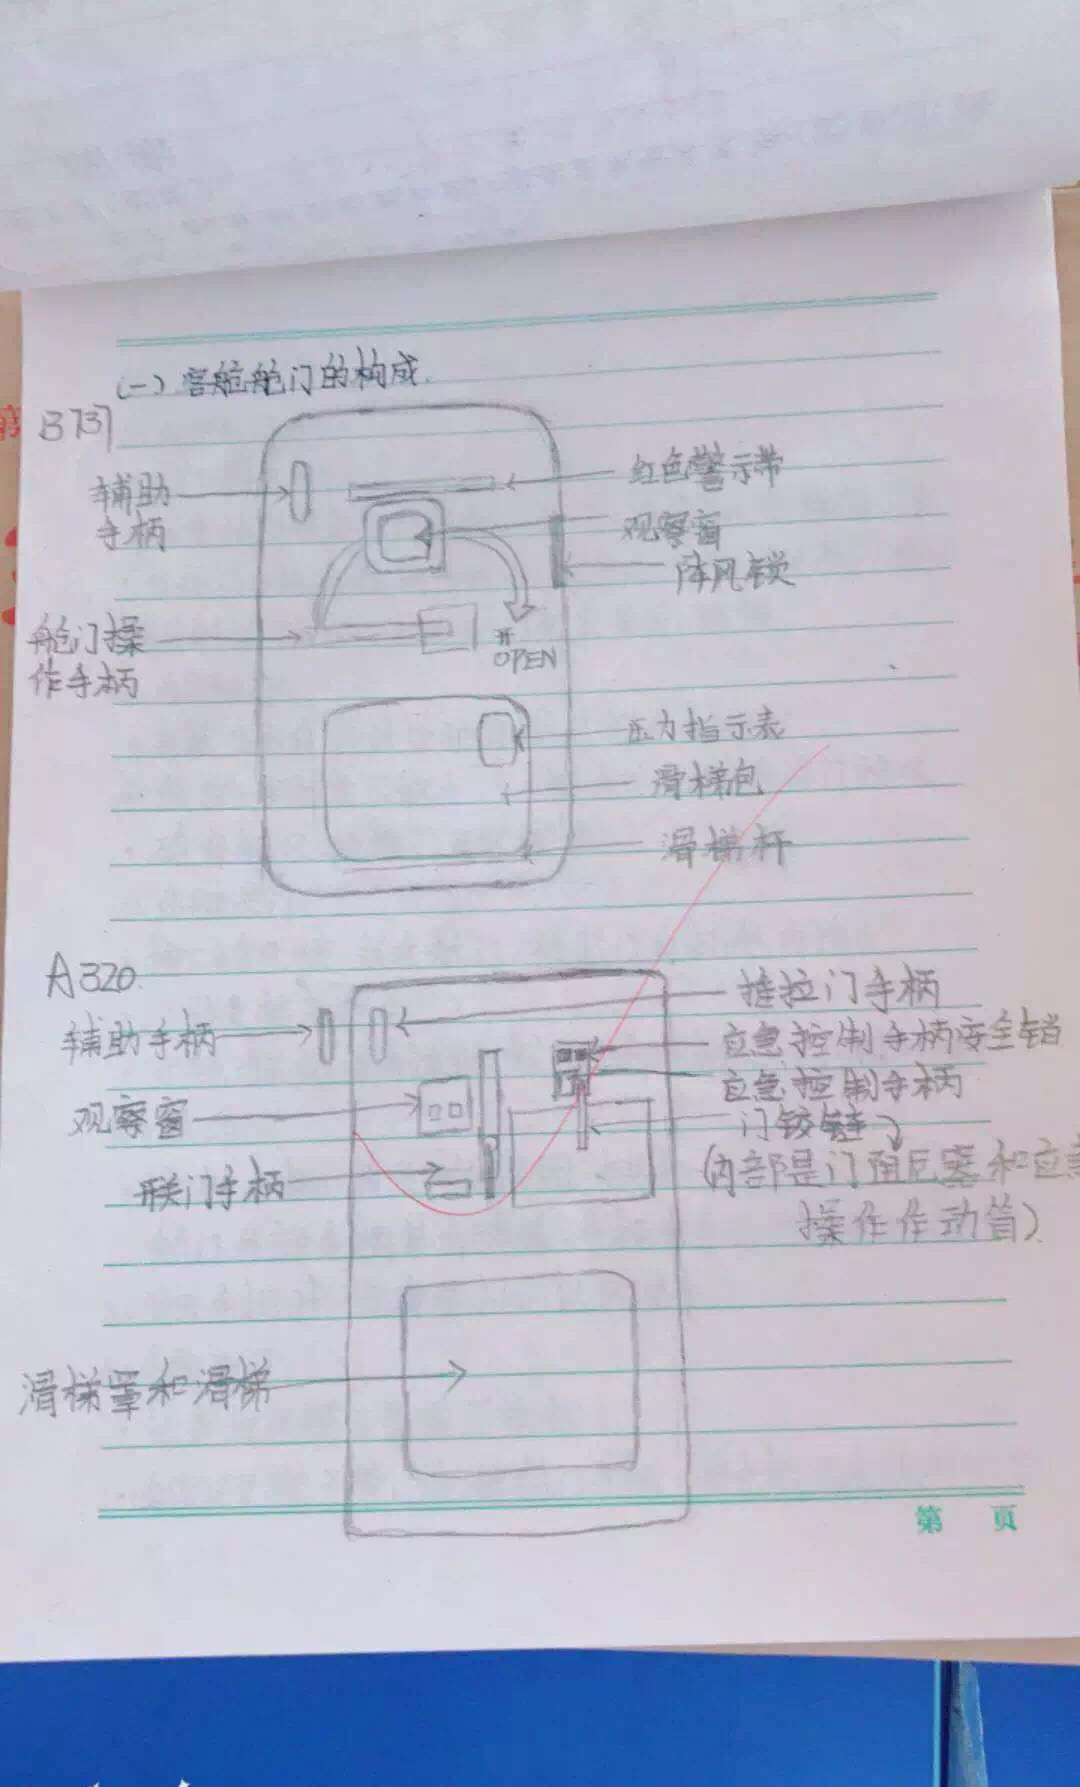 (一)客舱舱门的构成.
B737
辅助
手柄
红色警示带
观察窗
阵风锁
舱门操
作手柄
开
OPEN
压力指示表
滑梯包
滑梯杆
A320
辅助手柄
推拉门手柄
应急控制手柄安全销
应急控制手柄
观察窗
门铰链
联门手柄
(内部是门阻尼塞和应急
操作作动筒)
滑梯罩和滑梯
第 页